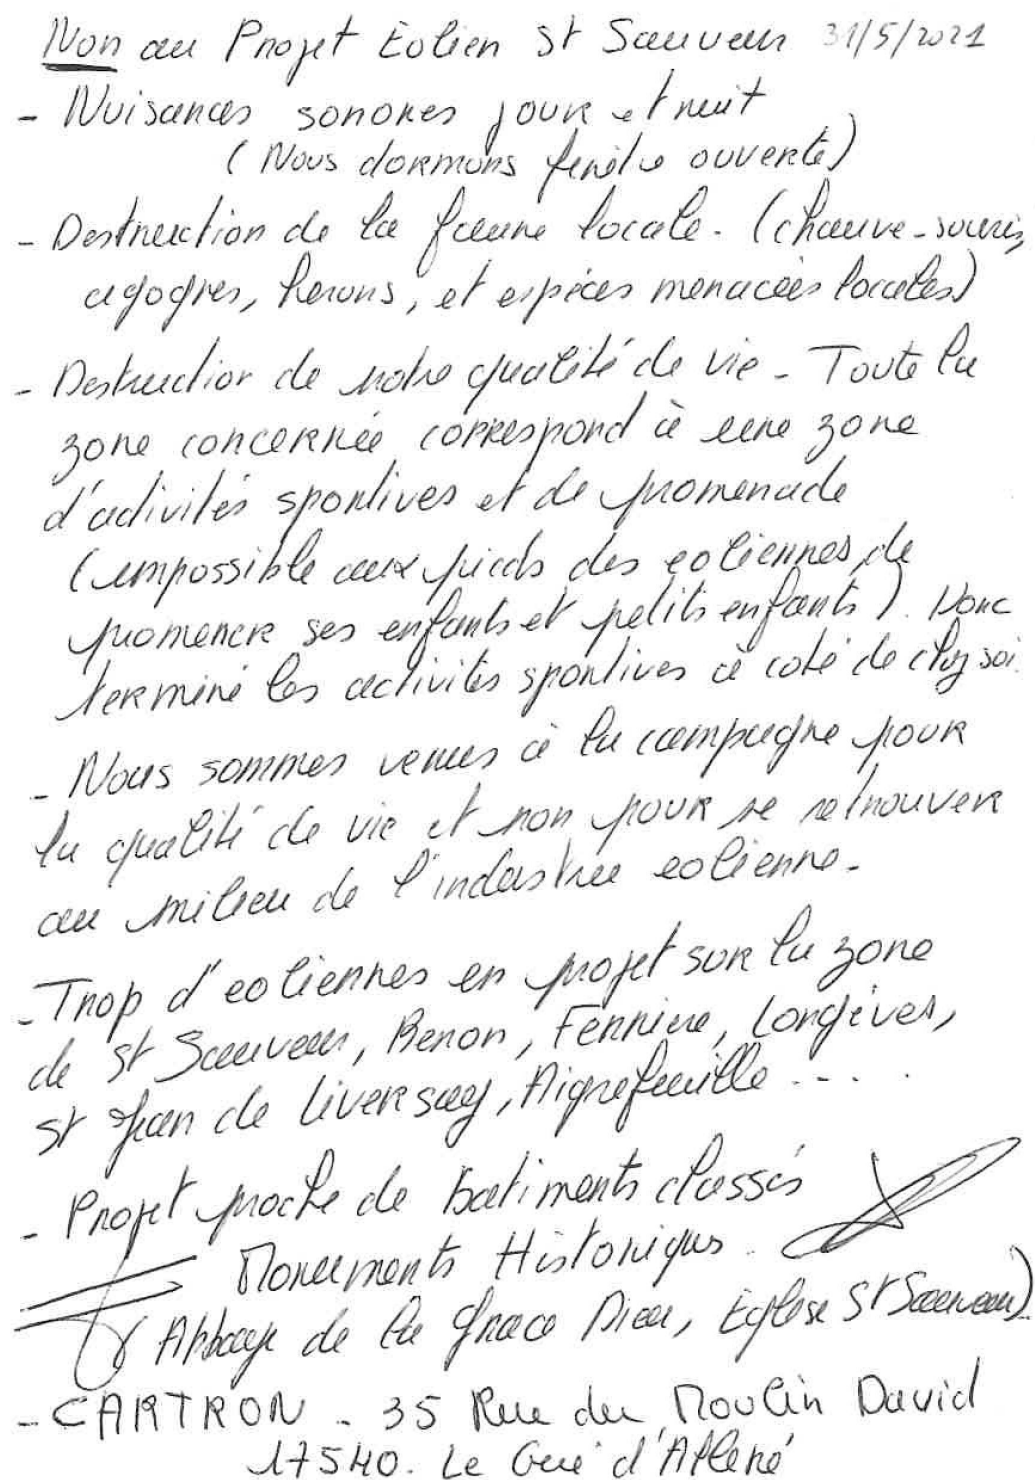 Non au Projet Eolien St Sauveur 31/5/2021
- Nuisances sonores jour et nuit
(Nous dormons fenêtre ouverte)
- Destruction de la faune locale. (chauve-souris,
cigognes, herons, et espèces menacées locales)
- Destruction de notre qualité de vie - Toute la
zone concernée correspond à une zone
d'activités sportives et de promenade
(impossible aux pieds des eoliennes, de
promener ses enfants et petits enfants). Donc
terminé les activités sportives à coté de chez soi.
- Nous sommes venus à la campagne pour
la qualité de vie et non pour se retrouver
au milieu de l'industrie eolienne -
- Trop d'eoliennes en projet sur la zone
de St Sauveur, Benon, Ferrière, Longèves,
St Jean de Liversay, Aigrefeuille ....
- Projet proche de batiments classés
Monuments Historiques.
(Abbaye de la Grace Dieu, Eglise St Sauveur).
- CARTRON - 35 Rue du Moulin David
17540. Le Gué d'Alleré